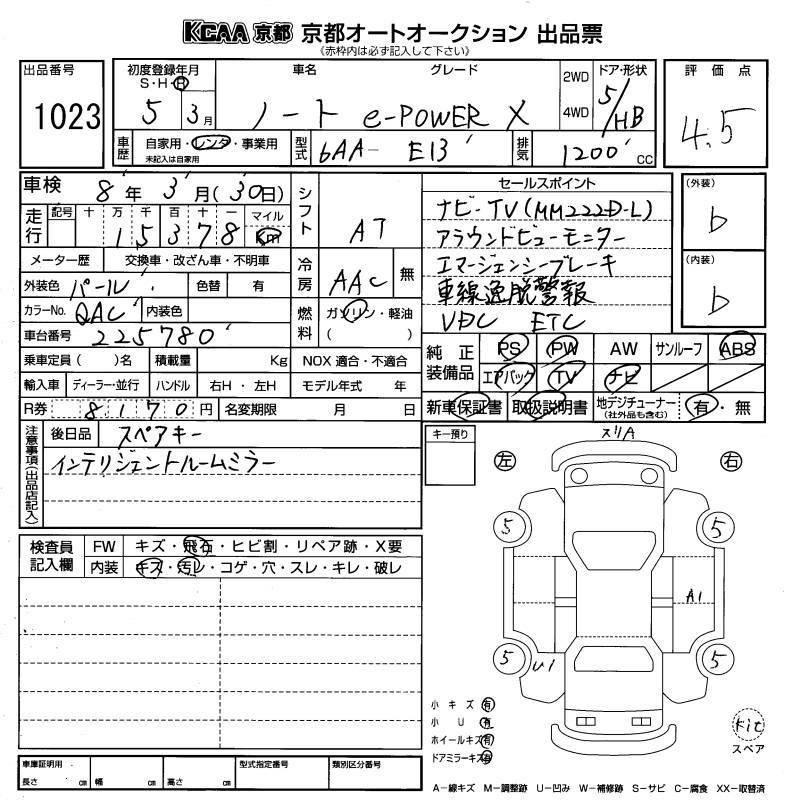 KCAA 京都 京都オートオークション 出品票
《赤枠内は必ず記入して下さい》
出品番号 1023
初度登録年月 S・H・R 5 3月
車名 グレード ノート e-POWER X
2WD 4WD
ドア・形状 5/HB
評価点 4.5
車歴 自家用・レンタ・事業用 未記入は自家用
型式 6AA- E13
排気 1200 CC
車検 8年 3月(30日)
走行 記号 十 万 千 百 十 一 マイル Km
1 5 3 7 8
シフト AT
セールスポイント
ナビ-TV(MM222D-L)
アラウンドビューモニター
エマージェンシーブレーキ
車線逸脱警報
VDC ETC
(外装) b
(内装) b
メーター歴 交換車・改ざん車・不明車
外装色 パール 色替 有
冷房 AAC 無
カラーNo. QAC 内装色
燃料 ガソリン・軽油 ( )
車台番号 225780
乗車定員 ( )名 積載量 Kg NOX 適合・不適合
輸入車 ディーラー・並行 ハンドル 右H・左H モデル年式 年
R券 8170円 名変期限 月 日
純正装備品 PS PW AW サンルーフ ABS
エアバック TV ナビ
新車保証書 取扱説明書 地デジチューナー (社外品も含む) 有・無
注意事項(出品店記入) 後日品 スペアキー
インテリジェントルームミラー
キー預り
スリA
左 右
5 5
A1
5 U1 5
検査員記入欄 FW キズ・飛石・ヒビ割・リペア跡・X要
内装 キズ・汚レ・コゲ・穴・スレ・キレ・破レ
小キズ 有
小U 有
ホイールキズ 有
ドアミラーキズ 有
kit
スペア
車庫証明用 長さ cm 幅 cm 高さ cm
型式指定番号 類別区分番号
A-線キズ M-調整跡 U-凹み W-補修跡 S-サビ C-腐食 XX-取替済